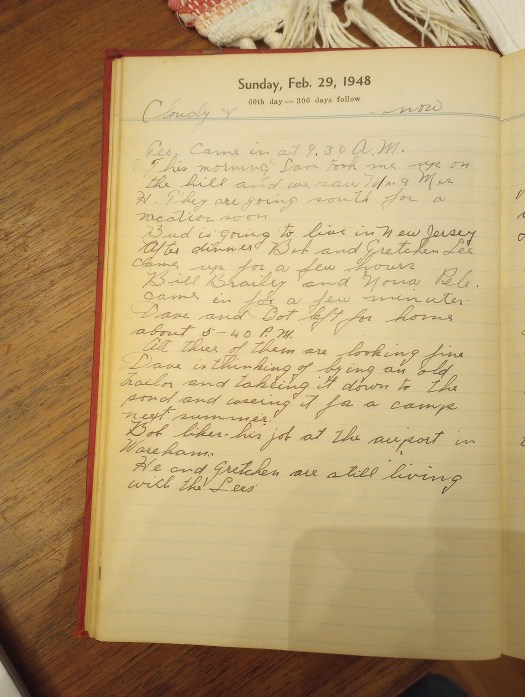 Sunday, Feb. 29, 1948
60th day — 306 days follow
Cloudy & now
came in at 9.30 A.M.
This morning Dave took me up on
the hill and we saw Mr & Mrs
H. They are going south for a
vacation soon
Bud is going to live in New Jersey
After dinner Bob and Gretchen Lee
came up for a few hours
Bill Brailey and Nona Bele.
came in for a few minutes.
Dave and Dot left for home
about 5-40 P.M.
All three of them are looking fine
Dave is thinking of bying an old
trailor and takeing it down to the
pond and useing it for a camp
next summer.
Bob likes his job at the airport in
Wareham.
He and Gretchen are still living
with the Lees